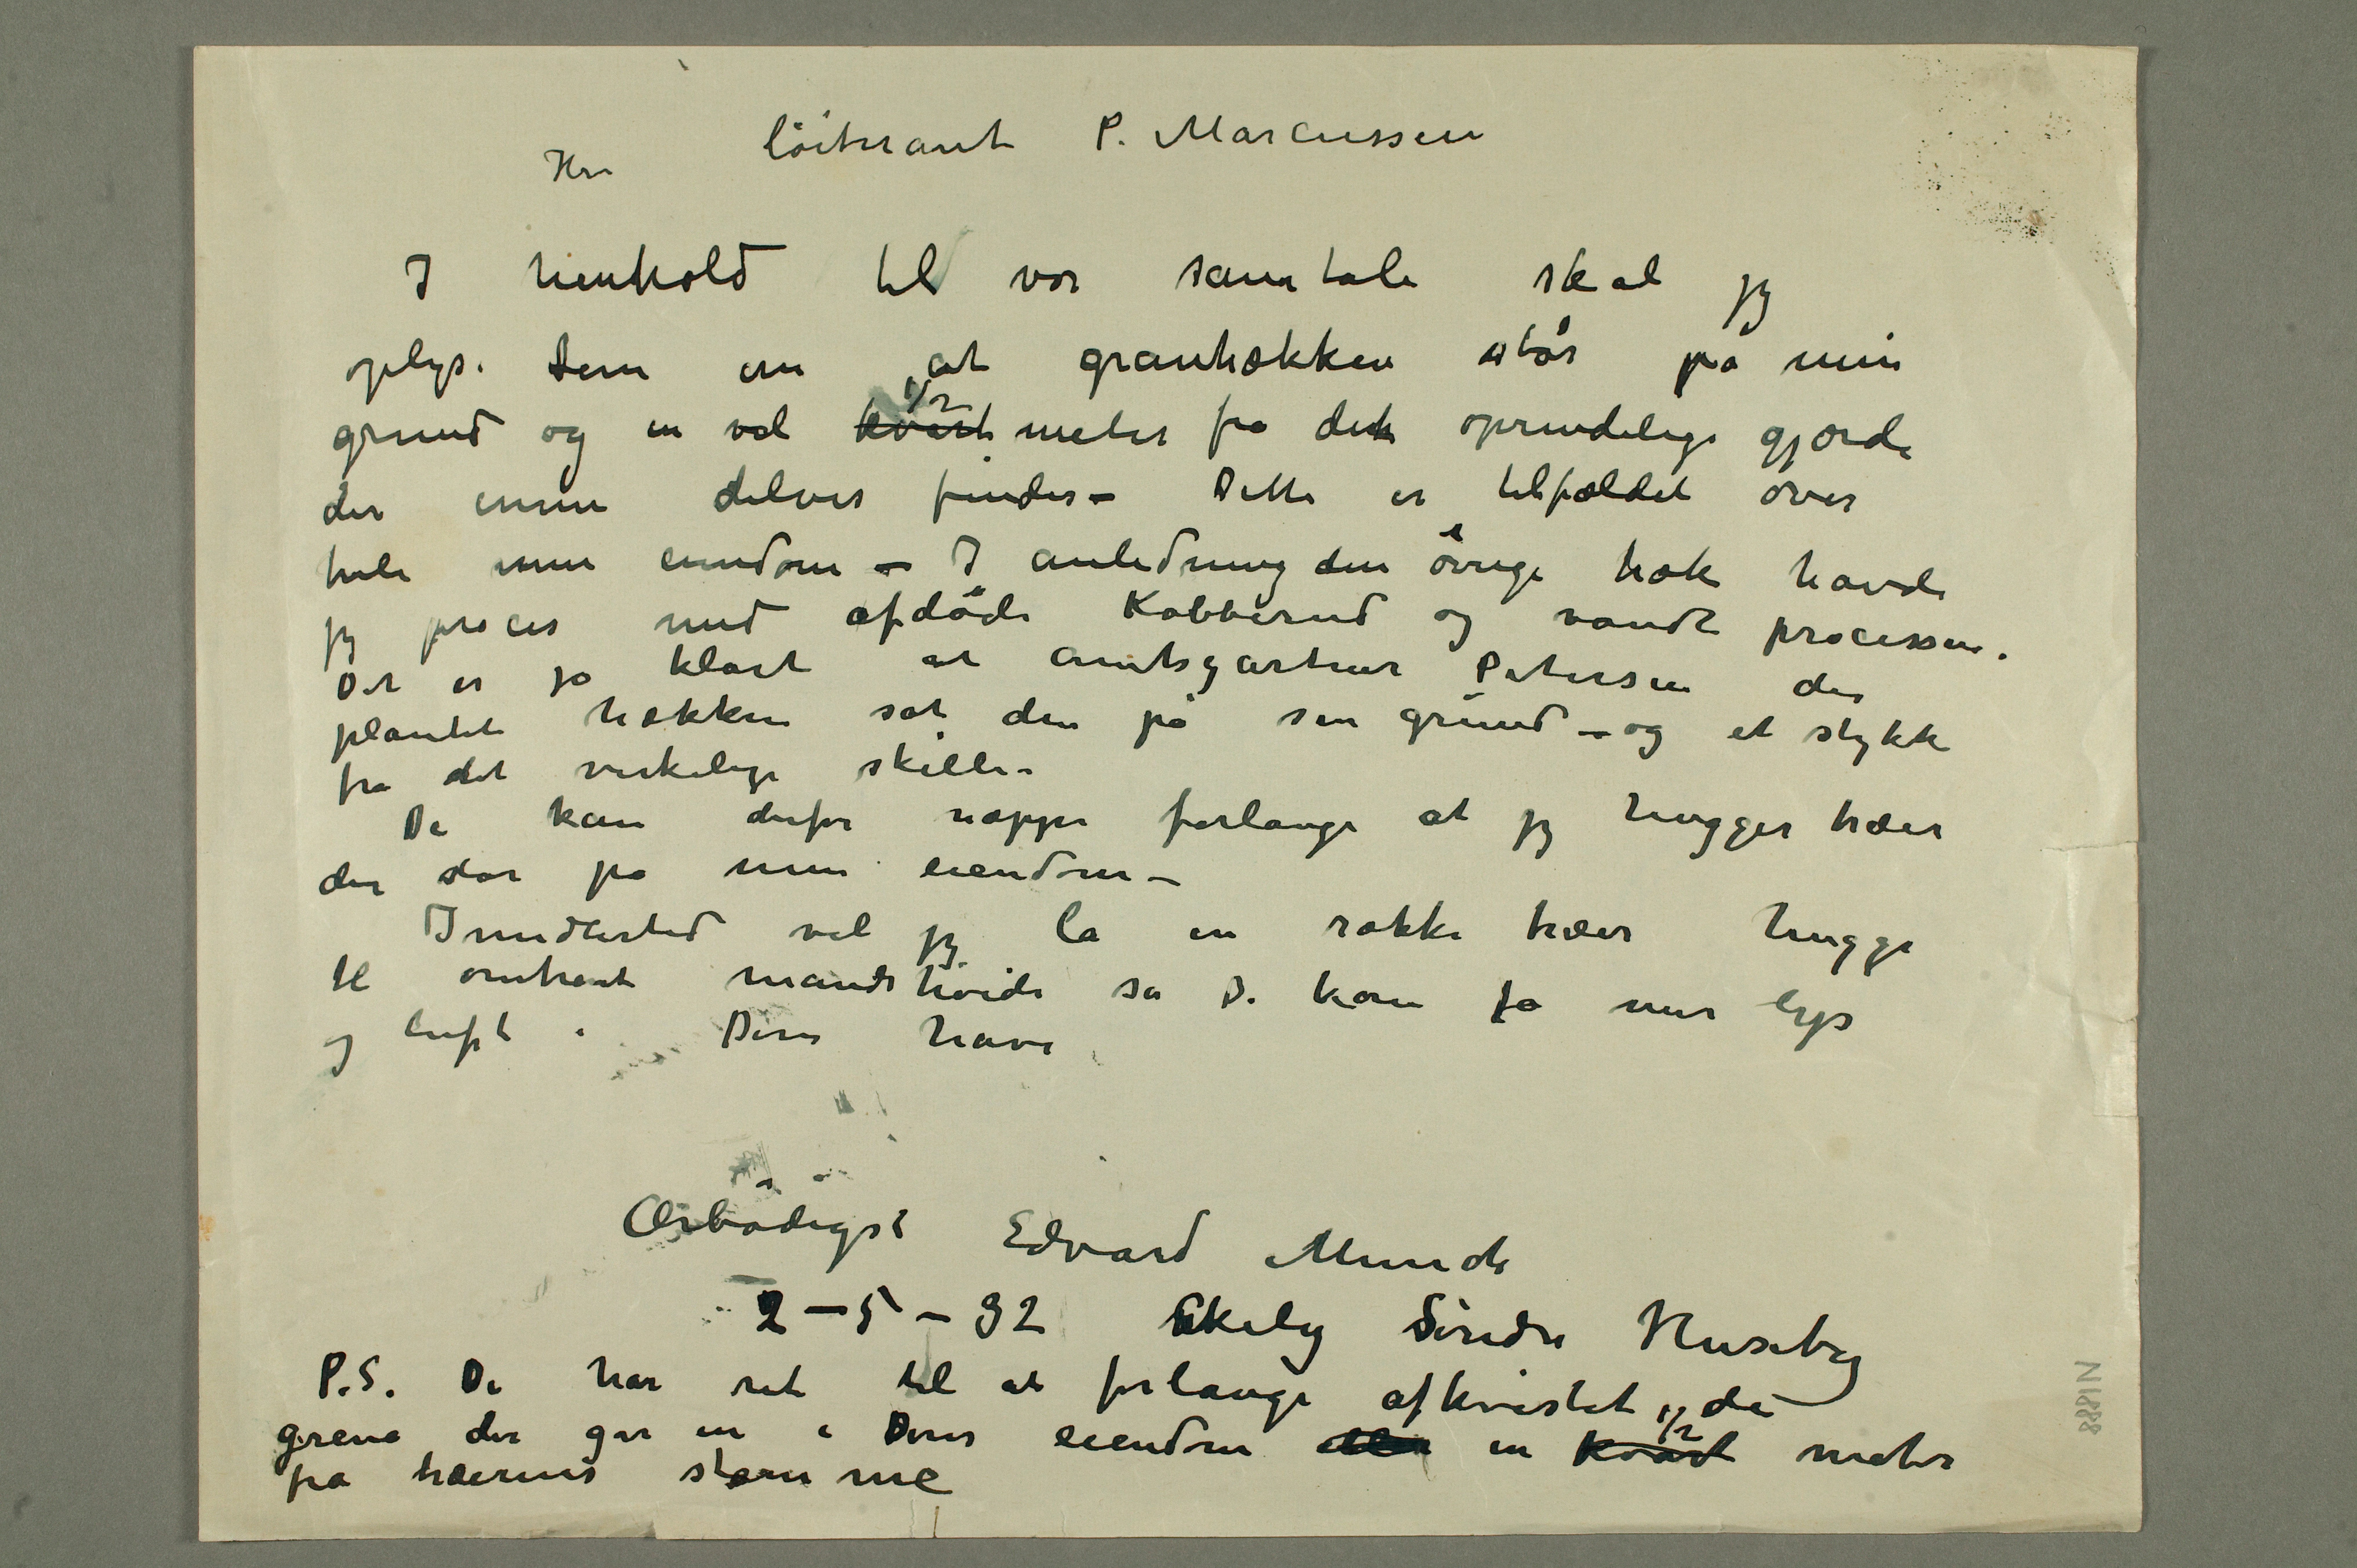 Hr. löitnant P. Marcussen
I henhold til vor samtale skal jeg
oplyse Dem om at granhækken står på min
grund og en vel kvart 1/2 meter fra det oprindelige gjærde
der ennu delvis findes – Dette er tilfældet over
hele min eiendom – I anledning den øvrige hæk havde
jeg proces med afdøde Kobberud og vandt processen.
Det er jo klart at amtsgartner Petersen der
plantet hækken sat den på sin grund – og et stykke
fra det virkelige skille.
De kan derfor næppe forlange at jeg hugger træer
der står på min eiendom –
Imidlertid vil jeg la en række træer hugge
til omtrent mandshøide så De kan få mer lys
og luft i Deres have
Ærbødigst Edvard Munch
2 – 5 – 32 Ekely Söndre Huseby
P.S. De har ret til at forlange afkvistet de
grene der går in i Deres eiendom eller en kvart 1/2 meter
fra træernes stamme
N 1888